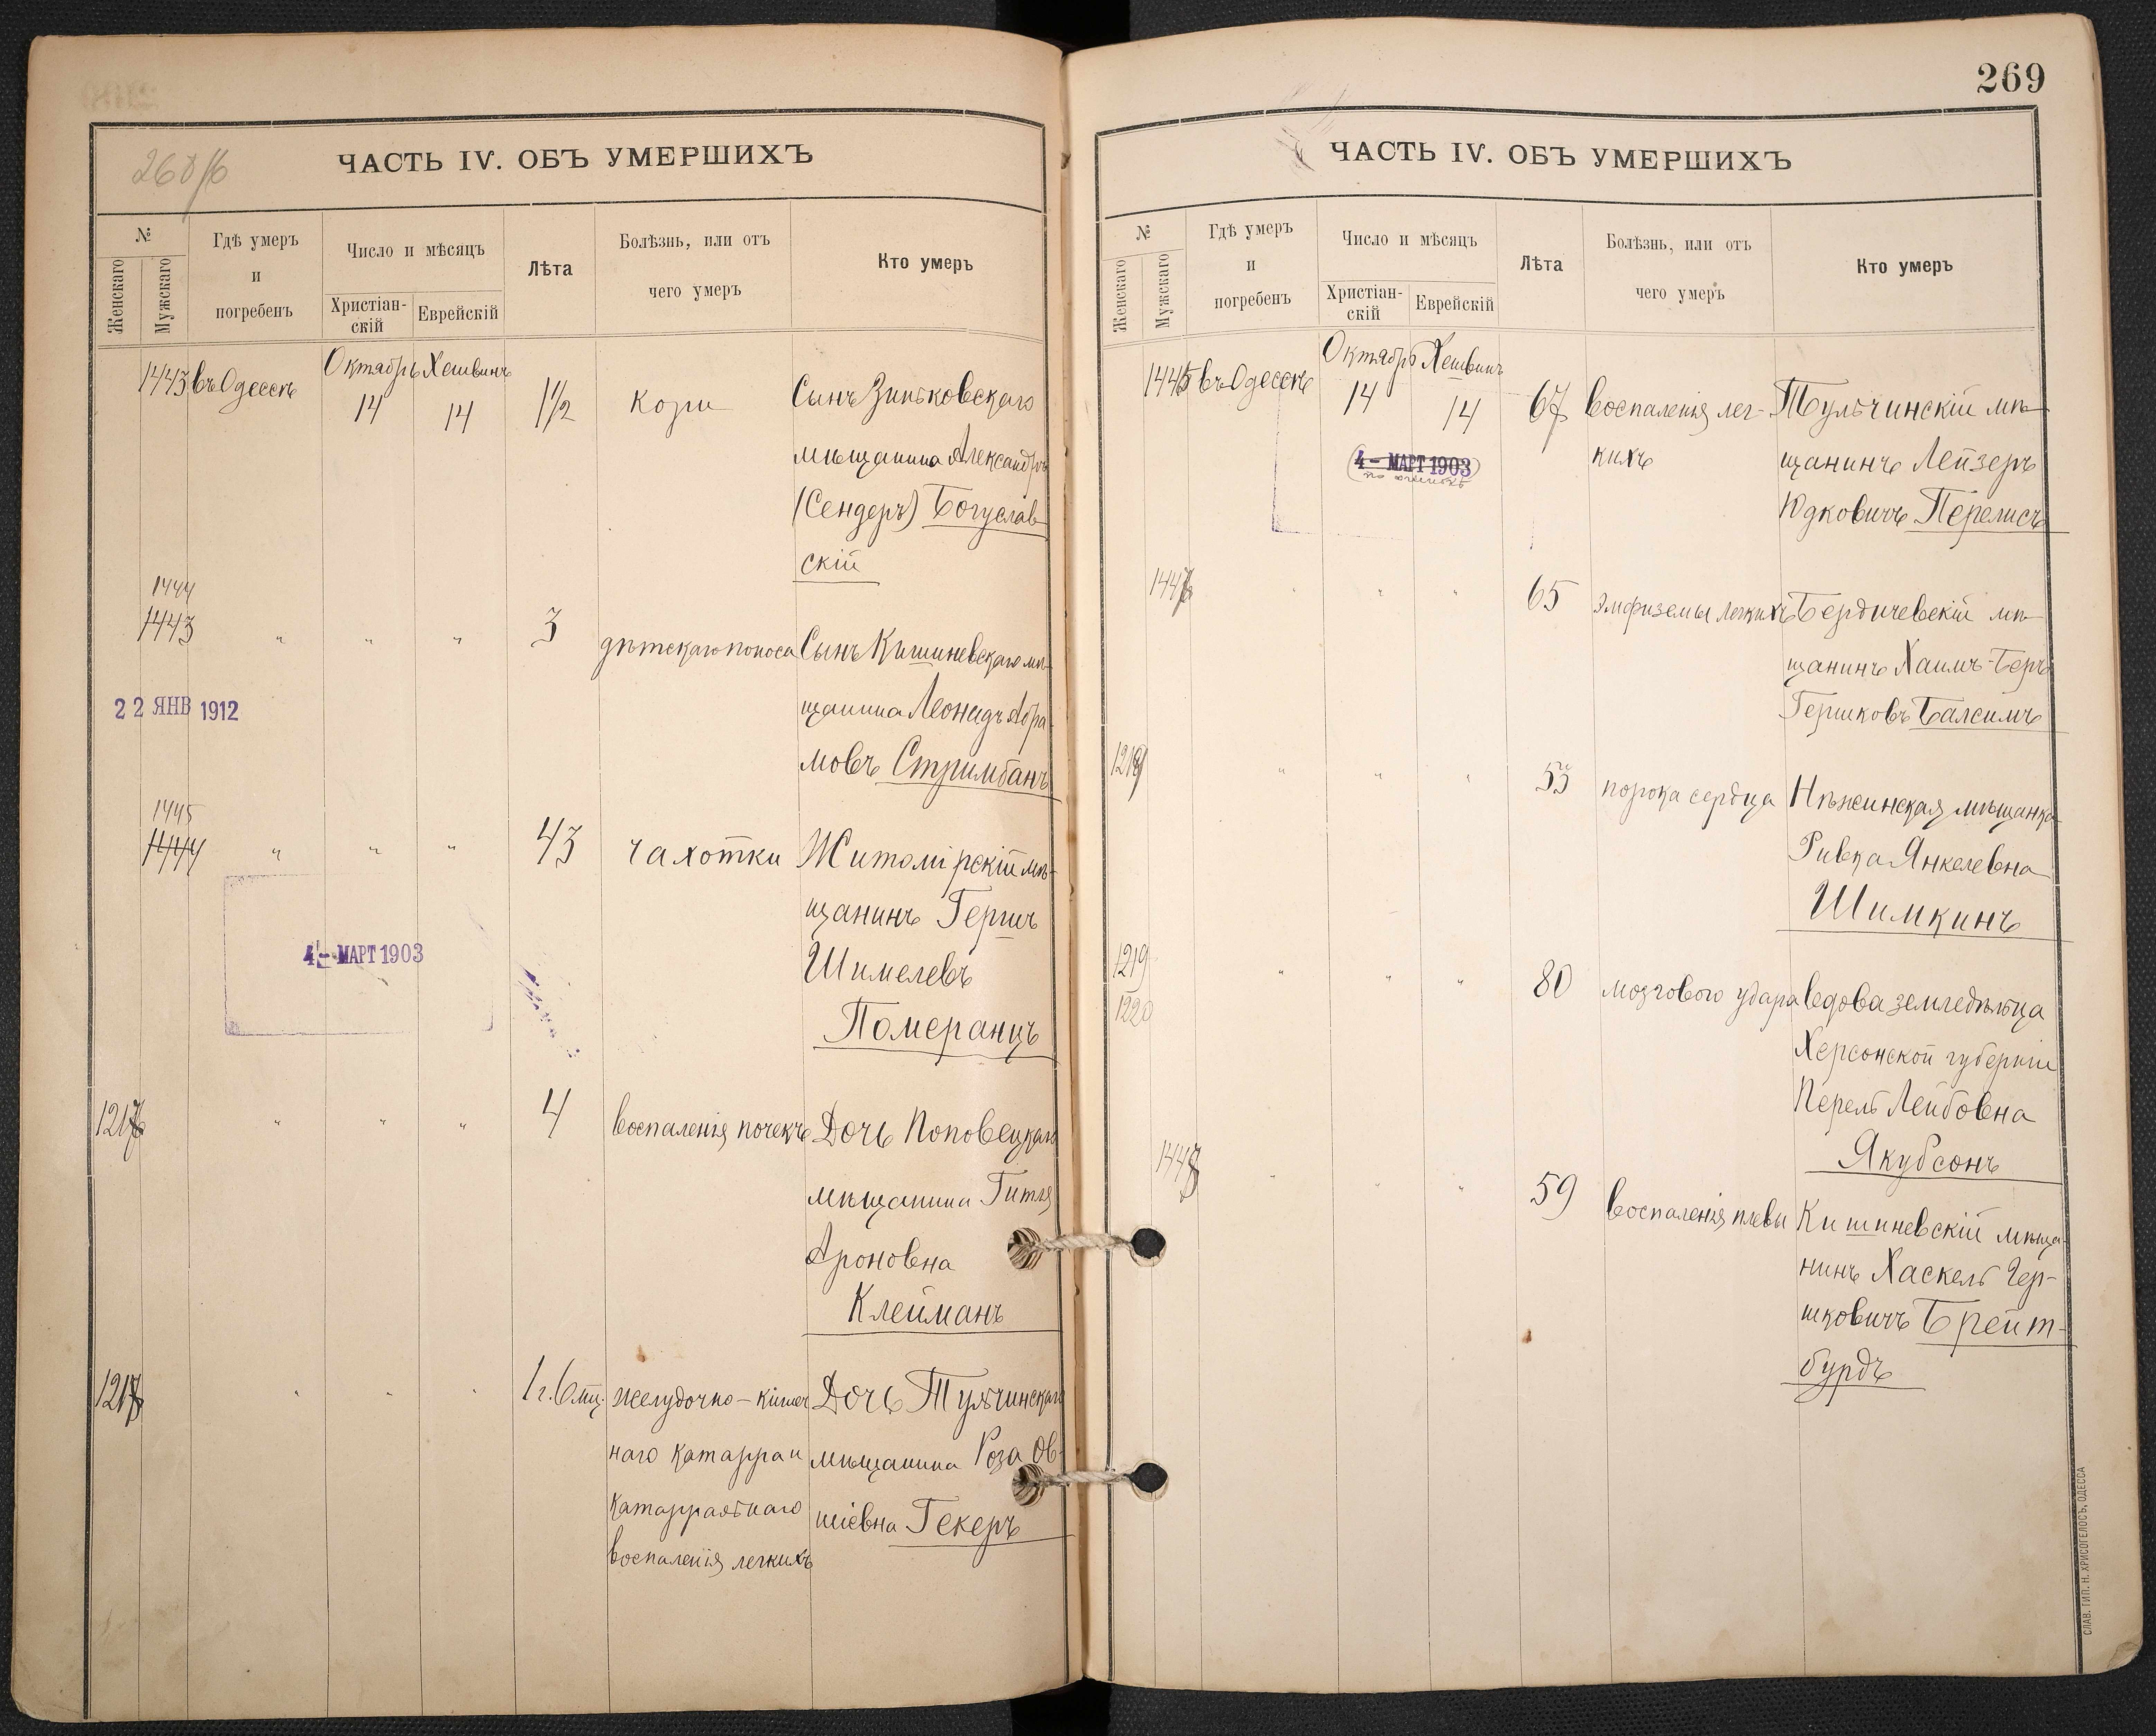 268/б
ЧАСТЬ IV. ОБЪ УМЕРШИХЪ
№
Женскаго
Мужскаго
Гдѣ умеръ
и
погребенъ
Число и мѣсяцъ
Христіан-
скій
Еврейскій
Лѣта
Болѣзнь, или отъ
чего умеръ
Кто умеръ
1443 въ Одессѣ Октябрь 14 Хешвинъ 14 1½ кори Сынъ Зиньковскаго
мѣщанина Александръ
(Сендеръ) Богуслав-
скій
1444
1443 " " " 3 дѣтскаго поноса Сынъ Кишиневскаго мѣ-
щанина Леонидъ Абра-
мовъ Стримбанъ
22 ЯНВ 1912
1445
1444 " " " 43 чахотки Житомірскій мѣ-
щанинъ Гершъ
Шимелевъ
Померанцъ
4 - МАРТ 1903
1217 " " " 4 воспаленія почекъ Дочь Поповецкаго
мѣщанина Гитля
Ароновна
Клейманъ
1218 " " " 1 г. 6 мц. желудочно-кишеч Дочь Тульчинскаго
наго катарра и мѣщанина Роза Ов-
катарральнаго шіевна Гекеръ
воспаленія легкихъ
269
ЧАСТЬ IV. ОБЪ УМЕРШИХЪ
№
Женскаго
Мужскаго
Гдѣ умеръ
и
погребенъ
Число и мѣсяцъ
Христіан-
скій
Еврейскій
Лѣта
Болѣзнь, или отъ
чего умеръ
Кто умеръ
въ Одессѣ Октябрь 14 Хешвинъ 14 67 воспаленія лег- Тульчинскій мѣ-
кихъ щанинъ Лейзеръ
Юдковичъ Перелисъ
4 - МАРТ 1903
" " " 65 эмфиземы легкихъ Бердичевскій мѣ-
щанинъ Хаимъ-Беръ
Гершковъ Балсимъ
1219 " " " 53 порока сердца Нѣжинская мѣщанка
Ривка Янкелевна
Шимкинъ
1219
1220 " " " 80 мозгового удара вдова земледѣльца
Херсонской губерніи
Перель Лейбовна
Якубсонъ
1448 " " " 59 воспаленія плевы Кишиневскій мѣща-
нинъ Хаскель Гер-
шковичъ Брейт-
бурдъ
СЛАВ. ТИП. Н. ХРИСОГЕЛОСЪ, ОДЕССА